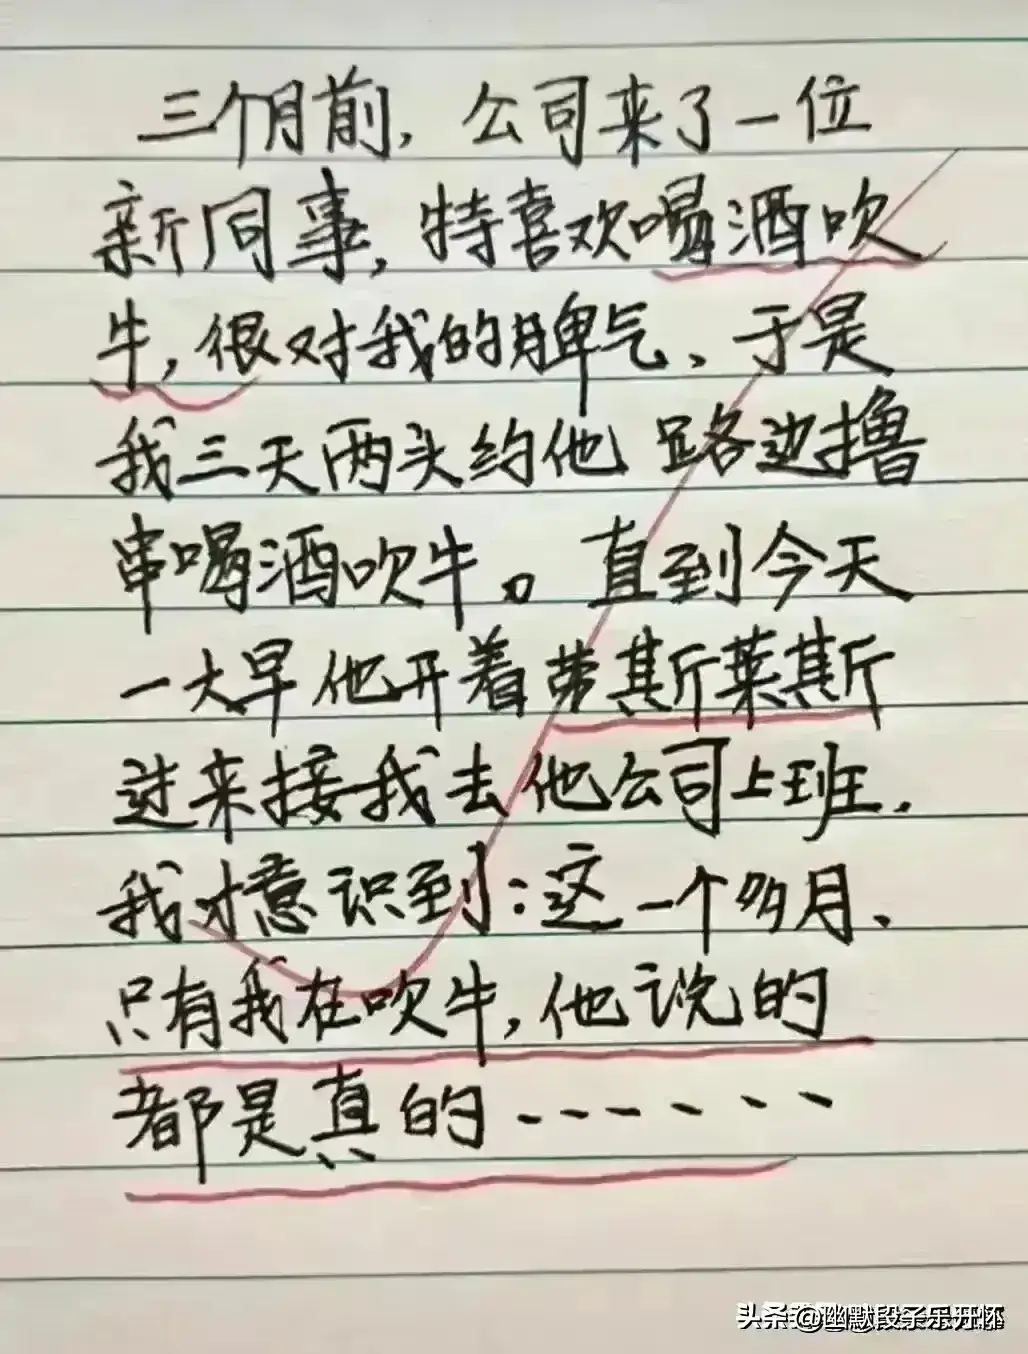 三个月前，公司来了一位
新同事，特喜欢喝酒吹
牛，很对我的脾气、于是
我三天两头约他路边撸
串喝酒吹牛。直到今天
一大早他开着劳斯莱斯
过来接我去他公司上班.
我才意识到：这一个多月、
只有我在吹牛，他说的
都是真的------
头条 @幽默段子乐开怀